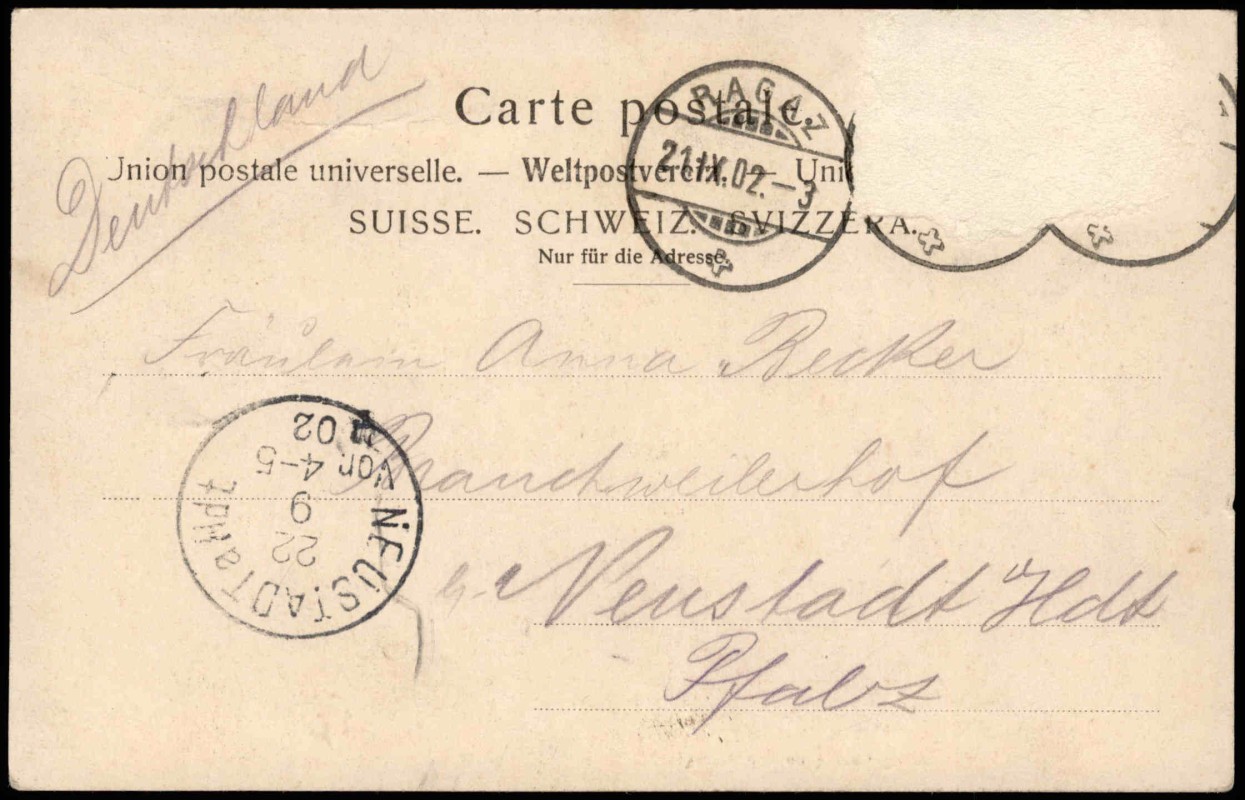 Deutschland
Carte postale.
Union postale universelle. — Weltpostverein. — Uni
SUISSE. SCHWEIZ. SVIZZERA.
Nur für die Adresse.
RAGAZ
21.IX.02.–3
Fräulein Anna Becker
Branchweilerhof
Neustadt Hdt
Pfalz
NEUSTADT a
22
9
Vor. 4–5
02